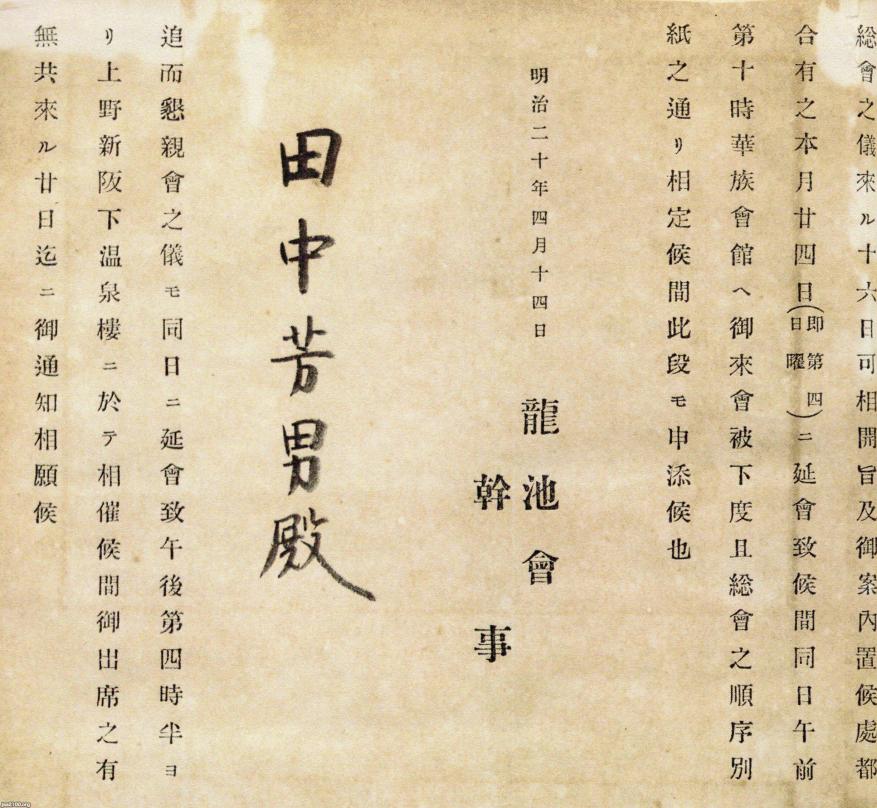 総會之儀來ル十六日可相開旨及御案內置候處都
合有之本月廿四日(即第四日曜)ニ延會致候間同日午前
第十時華族會館ヘ御來會被下度且総會之順序別
紙之通リ相定候間此段モ申添候也
明治二十年四月十四日
龍池會
幹事
田中芳男殿
追而懇親會之儀モ同日ニ延會致午後第四時半ヨ
リ上野新阪下温泉樓ニ於テ相催候間御出席之有
無共來ル廿日迄ニ御通知相願候
jaa2100.org